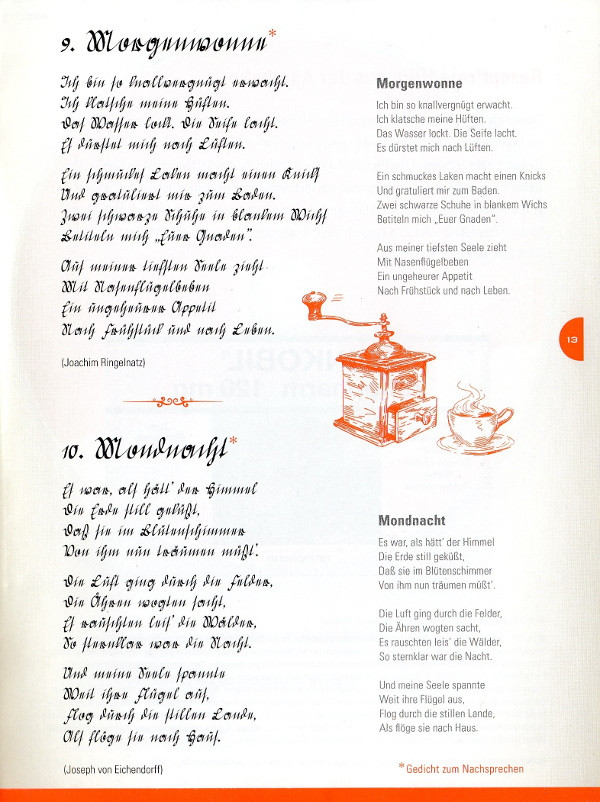 9. Morgenwonne*
Ich bin so knallvergnügt erwacht.
Ich klatsche meine Hüften.
Das Wasser lockt. Die Seife lacht.
Es dürstet mich nach Lüften.
Ein schmuckes Laken macht einen Knicks
Und gratuliert mir zum Baden.
Zwei schwarze Schuhe in blankem Wichs
Betiteln mich „Euer Gnaden”.
Aus meiner tiefsten Seele zieht
Mit Nasenflügelbeben
Ein ungeheurer Appetit
Nach Frühstück und nach Leben.
(Joachim Ringelnatz)
Morgenwonne
Ich bin so knallvergnügt erwacht.
Ich klatsche meine Hüften.
Das Wasser lockt. Die Seife lacht.
Es dürstet mich nach Lüften.
Ein schmuckes Laken macht einen Knicks
Und gratuliert mir zum Baden.
Zwei schwarze Schuhe in blankem Wichs
Betiteln mich „Euer Gnaden”.
Aus meiner tiefsten Seele zieht
Mit Nasenflügelbeben
Ein ungeheurer Appetit
Nach Frühstück und nach Leben.
13
10. Mondnacht*
Es war, als hätt’ der Himmel
Die Erde still geküßt,
Daß sie im Blütenschimmer
Von ihm nun träumen müßt’.
Die Luft ging durch die Felder,
Die Ähren wogten sacht,
Es rauschten leis’ die Wälder,
So sternklar war die Nacht.
Und meine Seele spannte
Weit ihre Flügel aus,
Flog durch die stillen Lande,
Als flöge sie nach Haus.
(Joseph von Eichendorff)
Mondnacht
Es war, als hätt’ der Himmel
Die Erde still geküßt,
Daß sie im Blütenschimmer
Von ihm nun träumen müßt’.
Die Luft ging durch die Felder,
Die Ähren wogten sacht,
Es rauschten leis’ die Wälder,
So sternklar war die Nacht.
Und meine Seele spannte
Weit ihre Flügel aus,
Flog durch die stillen Lande,
Als flöge sie nach Haus.
*Gedicht zum Nachsprechen